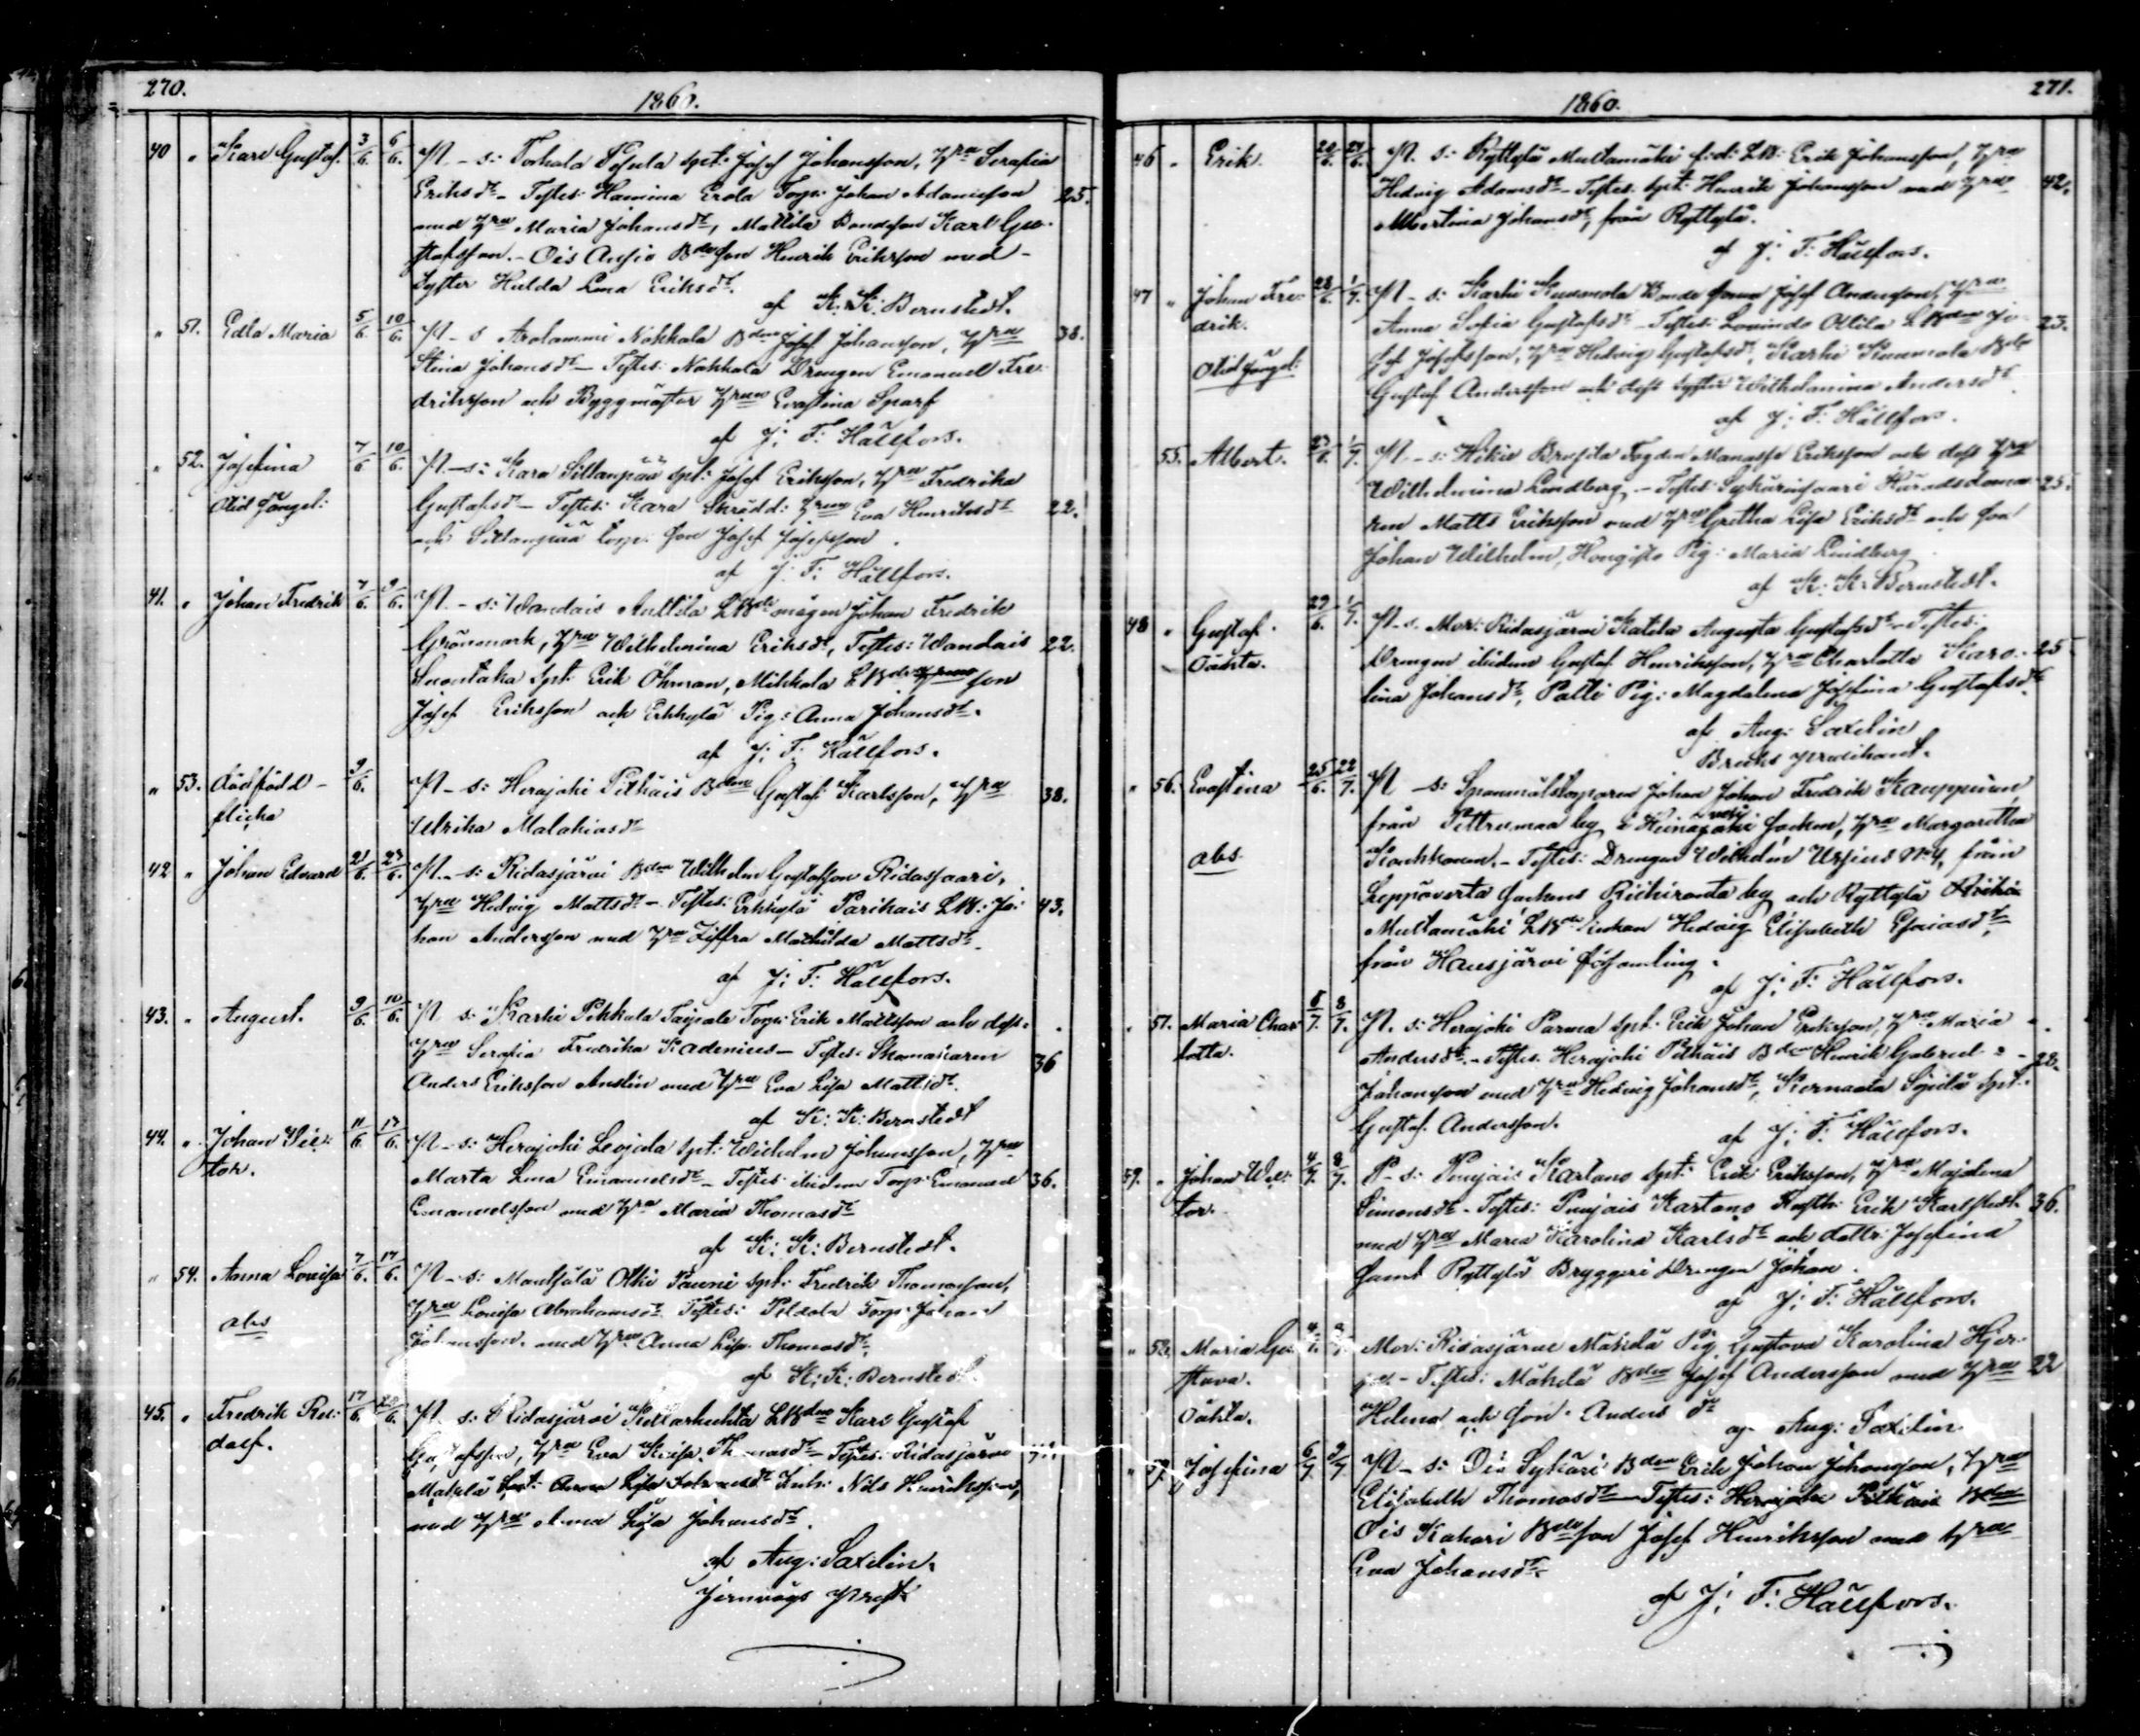 270.
1860.
40 " Karl Gustaf. 3/6. 6/6. P. s: Torhola Sepula spt: Josef Johansson, Hru Serafia
Eriksdr - Testes: Hamina Erola Torp: Johan Adamsson 25.
med Hru Maria Johansdr, Mattila Bondeson Karl Gu-
stafsson. - Ois Ansio Bdeson Henrik Eriksson med
Syster Hulda Lena Eriksdr.
af K: K: Bernstedt.
" 51. Edla Maria 5/6. 10/6. P. s Arolammi Nokkala Bden Josef Johansson, Hru 38.
Stina Johansdr - Testes: Nokkala Drengen Emanuel Fre-
driksson och Byggmäster Hrun Evastina Sparf
af J: F: Hällfors.
" 52. Josefina 7/6 10/6. P. s: Kara Sillanpää spt: Josef Eriksson, Hru Fredrika
Gustafsdr - Testes: Kara Skrädd: Hrun Eva Henriksdr 22.
och Sillanpää Torp: son Josef Josefsson.
af J: F: Hällfors.
41. " Johan Fredrik 7/6. 9/6. P. s: Wandais Anttila LBde mågen Johan Fredrik
Grönmark, Hru Wilhelmina Eriksdr, Testes: Wandais 22.
spt: Erik Öhman, Mikkola LBde son
Josef Eriksson och Erkkylä Pig: Anna Johansdr.
af J: F: Hällfors.
" 53. dödfödd - 9/6. P. s: Herajoki Pelhäis Bden Gustaf Karlsson, Hru 38.
flicka Ulrika Malakiasdr
42 " Johan Edvard 21/6. 23/6. P. s: Ridasjärvi Bden Wilhelm Gustafsson Ridassaari,
Hru Hedvig Mattsdr - Testes: Erkkylä Parikais LB: Jo- 43.
han Andersson med Hru Ziffra Mathilda Mattsdr.
af J: F: Hällfors.
43. " August. 9/6. 10/6. P. s: Karhi Pikkala Taipale Torp: Erik Mattsson och dess
Hru Serafia Fredrika Kadenius - Testes: Skomakaren 36
Anders Eriksson Anslin med Hru Eva Lisa Mattsdr.
af K: K: Bernstedt
44. " Johan Vic- 11/6. 17/6. P. s: Herajoki Lepola spt: Wilhelm Johansson, Hru
tor. Marta Lena Emanuelsdr - Testes: ibidem Torp: Emanuel 36.
Emanuelsson med Hru Maria Thomasdr
af K: K: Bernstedt.
" 54. Anna Lovisa 7/6. 17/6. P. s: Mantsälä Olki Pauni spt: Fredrik Thomasson,
abs Hru Lovisa Abrahamsdr. Testes: Peldola Torp: Johan
Johansson. med Hru Anna Lisa Thomasdr.
af K: K: Bernstedt
45. " Fredrik Ru- 17/6. P. s: Ridasjärvi LBden Karl Gustaf
dolf. Gustafsson, Hru Eva Thomasdr - Testes: Ridasjärvi
Makela Inh: Nils Henriksson,
med Hru Anna Lisa Johansdr.
af Aug: Saxelin.
Jernvägs Prest
271.
1860.
46 " Erik. P. s: Ryttylä Multamäki f: d: LB: Erik Johansson, Hru
Hedvig Adamsdr - Testes: spt: Henrik Johansson med Hru 42.
Albertina Johansdr, från Ryttylä.
af J: F: Hällfors.
47 " Johan Fre- 1/7. P. s: Karhi Kuumola Bonde sonen Josef Andersson, Hru
drik. Anna Sofia Gustafsdr - Testes: Ollila LBden Jo- 23.
sef Josefsson, Hru Hedvig Gustafsdr, Karhi Kuumola Bde
Gustaf Andersson och dess syster Wilhelmina Andersdr
af J: F: Hällfors.
55. Albert. 1/7. P. s: Hikiö Bryssila Fogden Manasse Eriksson och dess Hru
Wilhelmina Lindberg - Testes: Häradsdoma- 25.
ren Matts Eriksson med Hru Gretha Lisa Eriksdr och son
Johan Wilhelm, Hongisto Pig: Maria Lindberg
af K: K: Bernstedt.
48 " Gustaf. 29/6. 1/7. P. s. Mor: Ridasjärvi Katila Augusta Gustafsdr - Testes:
Oäkta. Drengen ibidem Gustaf Henriksson, Hru Charlotta Karo- 25
lina Johansdr, Palli Pig: Magdalena Josefina Gustafsdr
af Aug: Saxelin
Bruks predikant.
" 56. Evastina 25/6. 22/7. P. s: Spanmålstorparen Johan Johan Fredrik Kauppinen
från by i socken, Hru Margaretha
abs Konkkonen. - Testes: Drengen Wilhelm Ursinus No 4, från
Leppävirta sockens Riihiranta by och Ryttylä
Multamäki LBde Enkan Hedvig Elisabeth Esaiasdr,
från Hausjärvi församling.
af J: F: Hällfors.
" 57. Maria Char- 5/7. 8/7. P. s: Herajoki Parma spt: Erik Johan Eriksson, Hru Maria
lotta. Andersdr. - Testes: Herajoki Pelhäis Bden Henrik Gabriel 28.
Johansson med Hru Hedvig Johansdr, spt:
Gustaf Andersson.
af J: F: Hällfors.
" Johan Wic- 4/7. 8/7. P. s: Punjais Kartano spt: Erik Eriksson, Hru Majalena
tor. Simonsdr - Testes: Punjais Kartano Erik Karlstedt 36.
med Hru Maria Karolina Karlsdr och dottr: Josefina
samt Ryttylä Bryggeri Drengen Johan.
af J: F: Hällfors.
" Maria Gu- Mor: Ridasjärvi Mäkelä Pig. Gustava Karolina
stava. - Testes: Mäkelä Bden Josef Andersson med Hru 22
Oäkta. Helena och son Anders
af Aug: Saxelin
" Josefina 6/7 P. s: Ois Sykäri Bden Erik Johan Johansson, Hru
Elisabeth Thomasdr - Testes: Herajoki Pelhäis Bden
Ois Kahari Bdeson Josef Henriksson med Hru
Eva Johansdr.
af J: F: Hällfors.